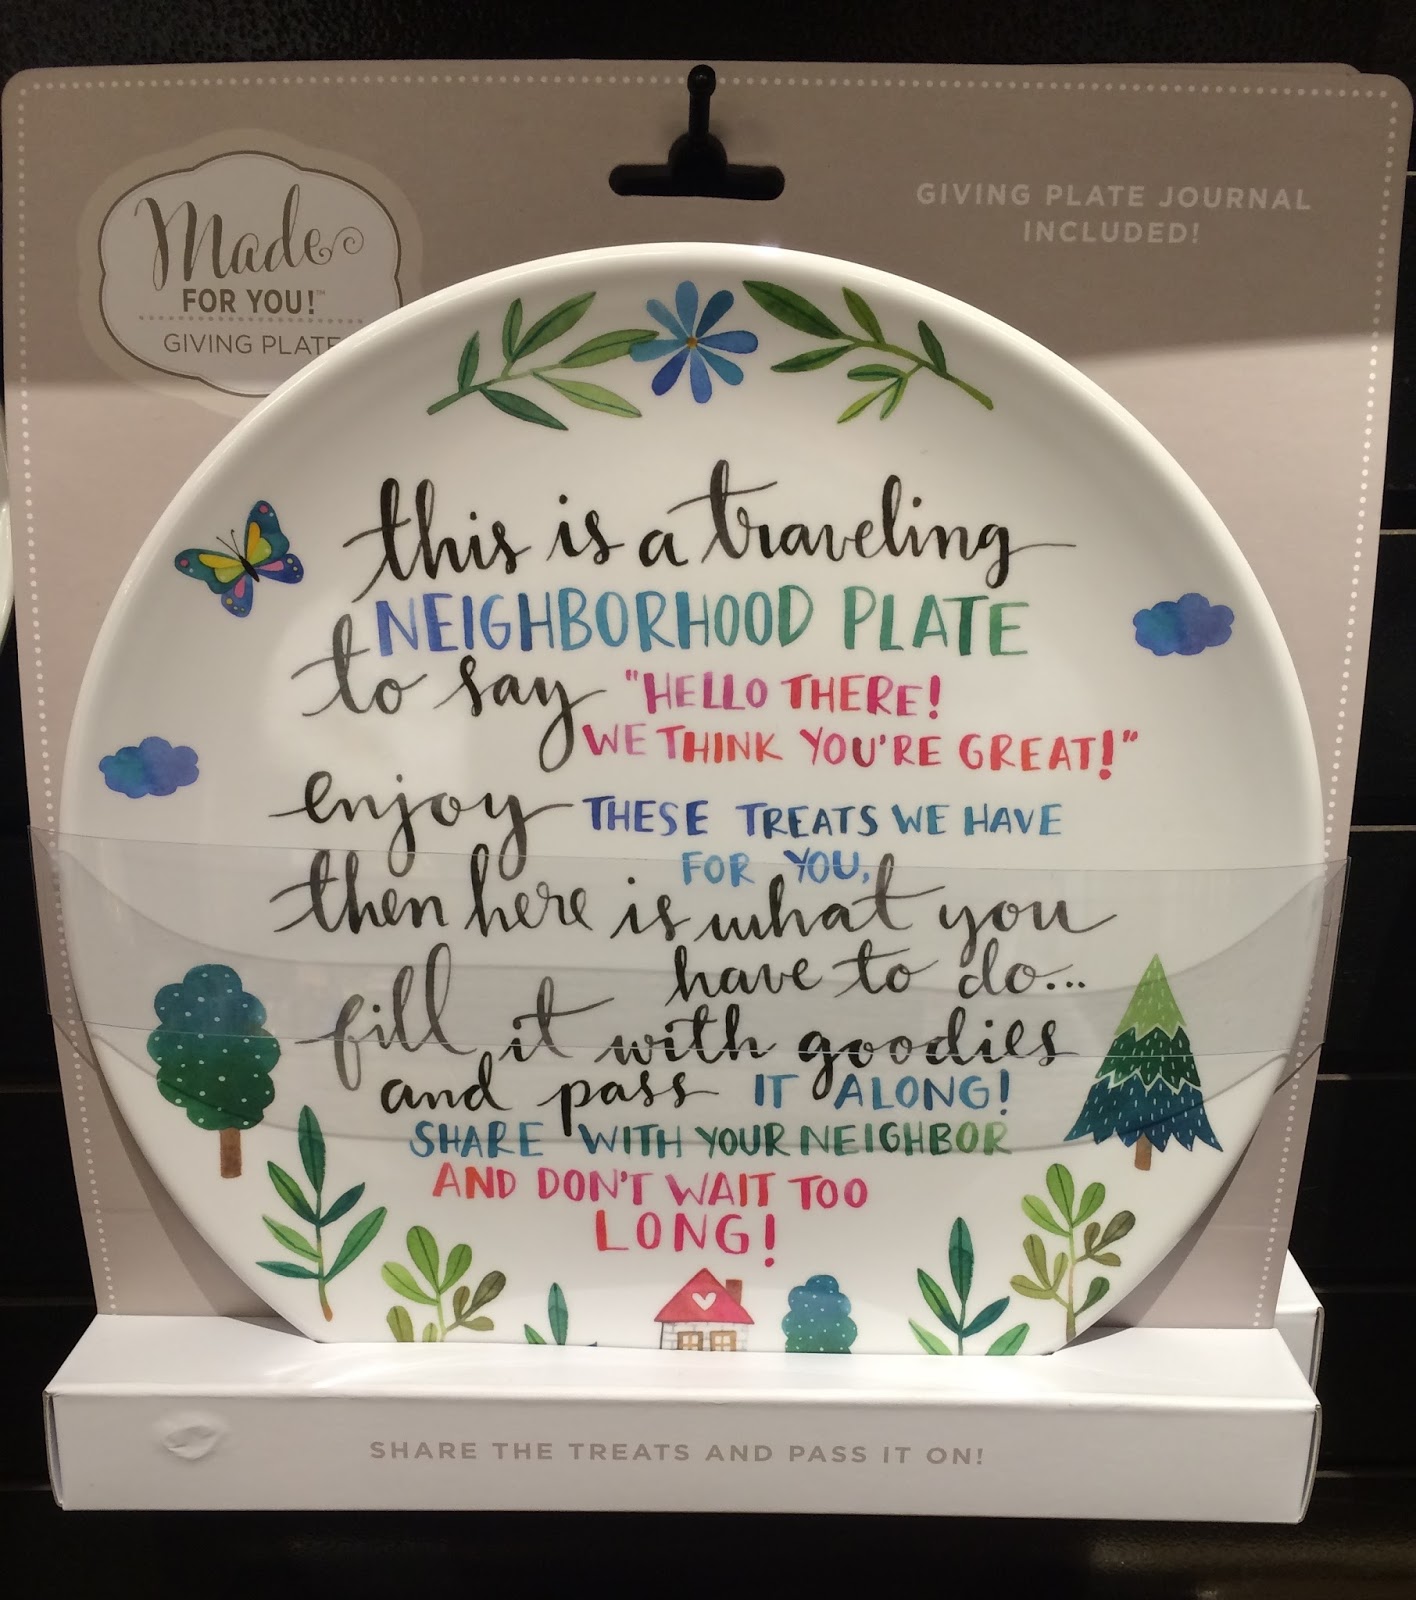 Made
FOR YOU!™
GIVING PLATE
GIVING PLATE JOURNAL
INCLUDED!
this is a traveling
NEIGHBORHOOD PLATE
to say "HELLO THERE!
WE THINK YOU'RE GREAT!"
enjoy THESE TREATS WE HAVE
FOR YOU,
then here is what you
have to do...
fill it with goodies
and pass IT ALONG!
SHARE WITH YOUR NEIGHBOR
AND DON'T WAIT TOO
LONG!
SHARE THE TREATS AND PASS IT ON!